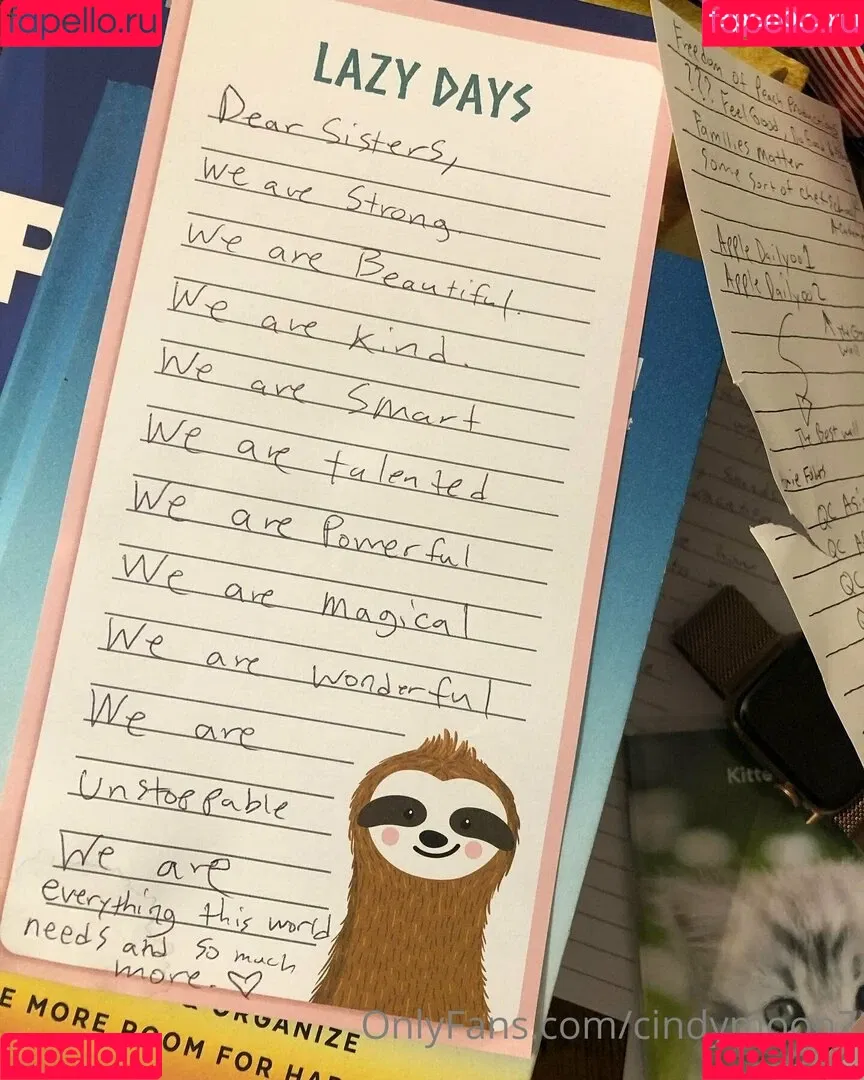 fapello.ru
fapello.ru
LAZY DAYS
Dear Sisters,
We are Strong
We are Beautiful.
We are Kind.
We are Smart
We are talented
We are Powerful
We are Magical
We are wonderful
We are
Unstoppable
We are
everything this world
needs and so much
more. ♡
Freedom of Peach
??? Feel Good, Do Good
Families Matter
Some sort of
Apple Daily001
Apple Daily002
The Best wall
QC
QC
QC
P
Kitte
E MORE ROOM FOR HA
& ORGANIZE
OnlyFans.com/cindymoon7
fapello.ru
fapello.ru